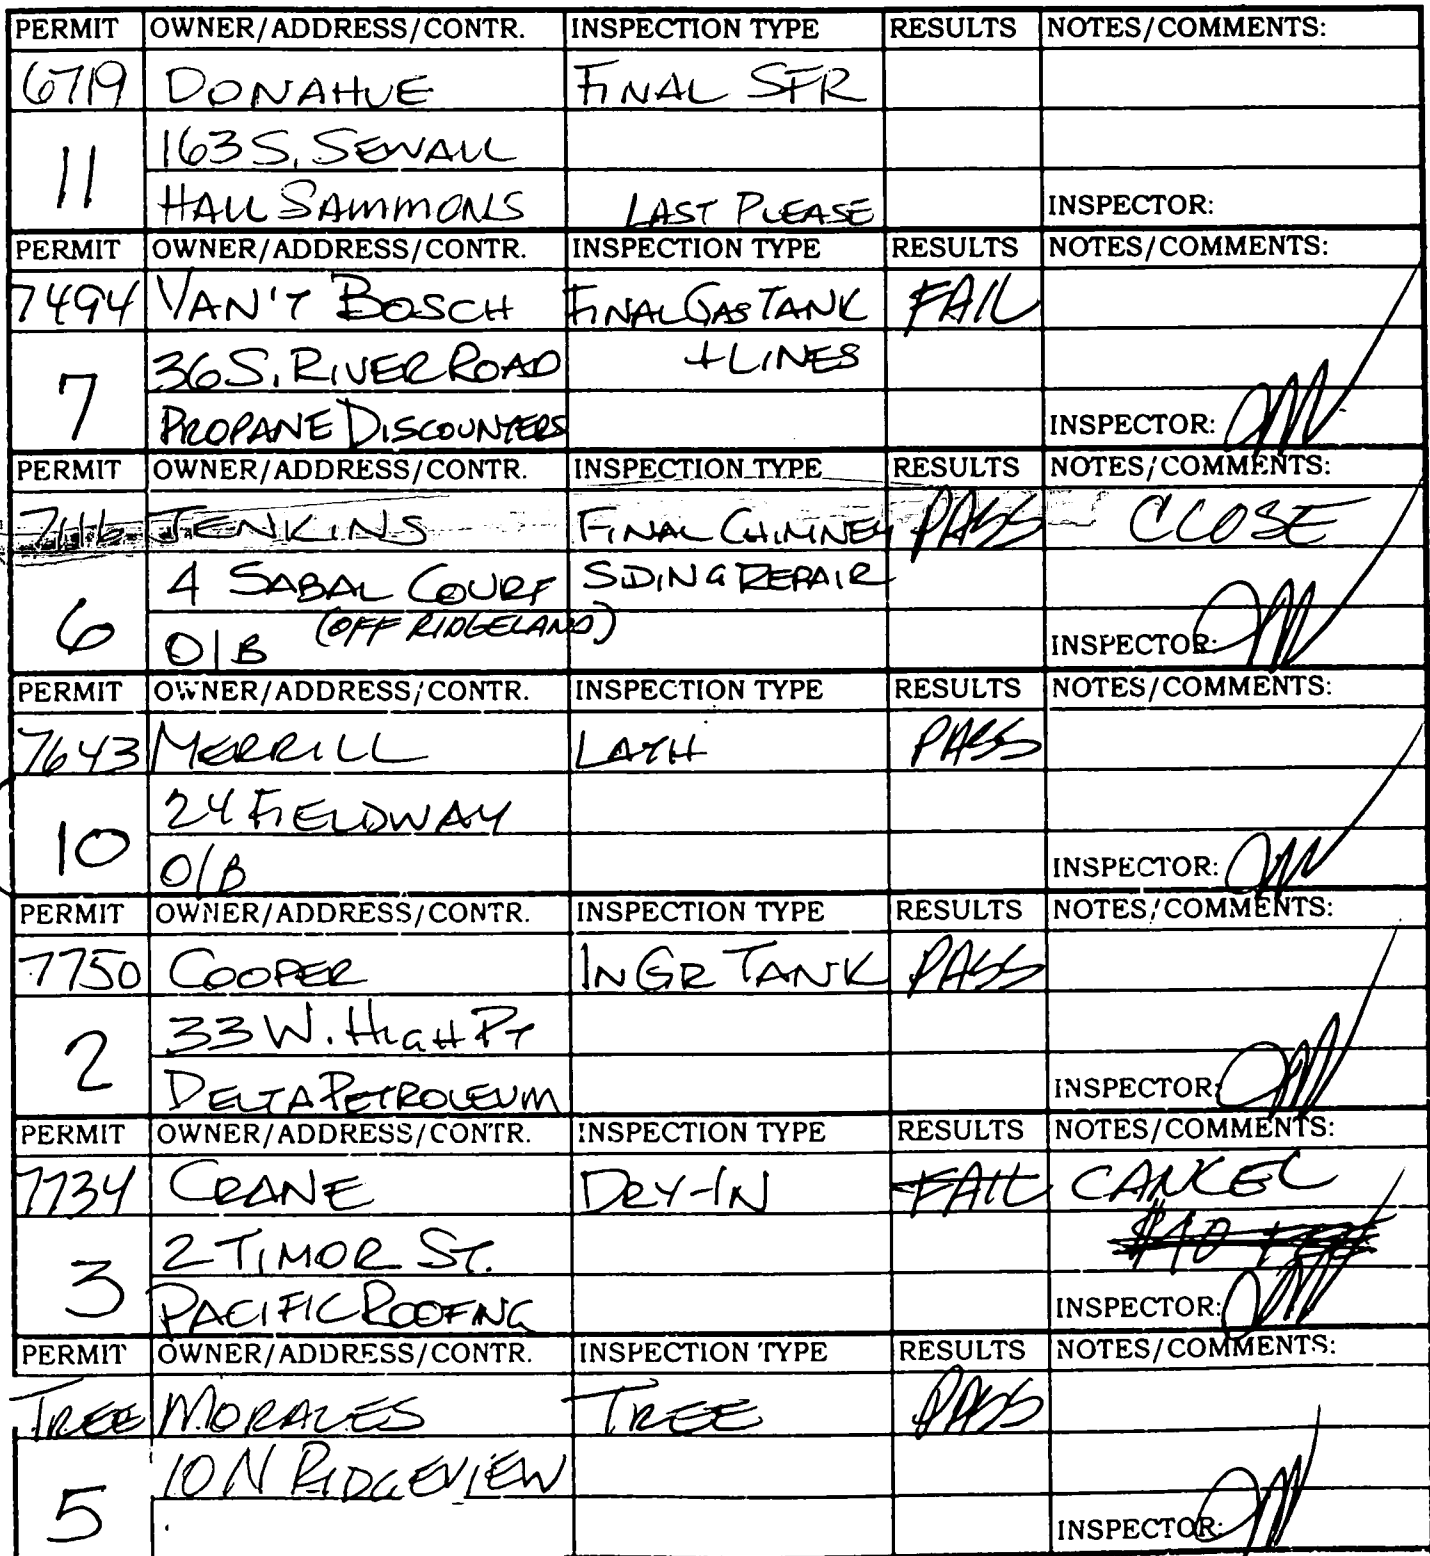 PERMIT OWNER/ADDRESS/CONTR. INSPECTION TYPE RESULTS NOTES/COMMENTS:
6719 DONAHUE FINAL SFR
11 163 S. SEWALL
HALL SAMMONS LAST PLEASE INSPECTOR:
PERMIT OWNER/ADDRESS/CONTR. INSPECTION TYPE RESULTS NOTES/COMMENTS:
7494 VAN'T BOSCH FINAL GAS TANK FAIL
7 36 S. RIVER ROAD + LINES
PROPANE DISCOUNTERS INSPECTOR:
PERMIT OWNER/ADDRESS/CONTR. INSPECTION TYPE RESULTS NOTES/COMMENTS:
7116 JENKINS FINAL CHIMNEY PASS CLOSE
6 4 SABAL COURT SIDING REPAIR
O/B (OFF RIDGELAND) INSPECTOR:
PERMIT OWNER/ADDRESS/CONTR. INSPECTION TYPE RESULTS NOTES/COMMENTS:
7643 MERRILL LATH PASS
10 24 FIELDWAY
O/B INSPECTOR:
PERMIT OWNER/ADDRESS/CONTR. INSPECTION TYPE RESULTS NOTES/COMMENTS:
7750 COOPER IN GR TANK PASS
2 33 W. HIGH PT
DELTA PETROLEUM INSPECTOR:
PERMIT OWNER/ADDRESS/CONTR. INSPECTION TYPE RESULTS NOTES/COMMENTS:
7734 CRANE DRY-IN FAIL CANCEL
3 2 TIMOR ST. $40
PACIFIC ROOFING INSPECTOR:
PERMIT OWNER/ADDRESS/CONTR. INSPECTION TYPE RESULTS NOTES/COMMENTS:
TREE MORALES TREE PASS
5 10 N RIDGEVIEW
INSPECTOR: